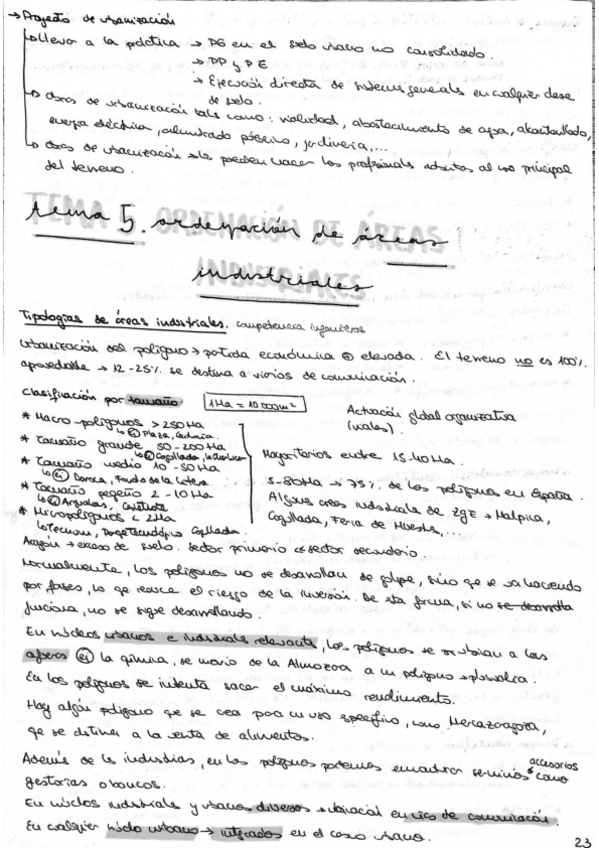 → Proyecto de urbanización
↳ lleva a la práctica → PG en el suelo urbano no consolidado.
→ PP y PE
→ Ejecución directa de sistemas generales en cualquier clase
de suelo.
→ Obras de urbanización tales como: vialidad, abastecimiento de agua, alcantarillado,
energía eléctrica, alumbrado público, jardinería,...
→ Obras de urbanización → las pueden hacer los profesionales al uso principal
del terreno.
tema 5. ordenación de áreas
industriales
Tipologías de áreas industriales. competencia ingenieros
Urbanización del polígono → partida económica elevada. El terreno no es 100%
aprovechable → 12-25% se destina a viarios de comunicación.
Clasificación por tamaño 1Ha = 10000m²
Actuación global organizativa
(viales).
* Macro-polígonos > 250Ha
↳ ej Plaza,
* Tamaño grande 50-200Ha
↳ ej Cogullada,
* Tamaño medio 10-50Ha
↳ ej
* Tamaño pequeño 2-10Ha
↳ ej Argualas,
* Micropolígonos < 2Ha
↳ Tecnum, Parque Tecnológico Cogullada.
Mayoritarios entre 15-40Ha.
5-80Ha → 75% de los polígonos en España.
Algunas áreas industriales de ZGZ → Malpica,
Cogullada, Feria de Muestras,
Aragón → exceso de suelo. Sector primario sector secundario.
Normalmente, los polígonos no se desarrollan de golpe, sino que se va haciendo
por fases, lo que reduce el riesgo de la inversión. De esta forma, si no se desarrolla
funciona, no se sigue desarrollando.
En núcleos urbanos e industriales relevantes, los polígonos se ubican a las
afueras ej la química, se movió de la Almozara a un polígono
En los polígonos se intenta sacar el máximo rendimiento.
Hay algún polígono que se crea para un uso específico, como Mercazaragoza,
que se destina a la venta de alimentos.
Además de las industrias, en los polígonos podemos encontrar servicios accesorios como
gestorías o bancos.
En núcleos industriales y urbanos diversos → ubicación en vías de comunicación.
En cualquier núcleo urbano → integrados en el casco urbano.
23